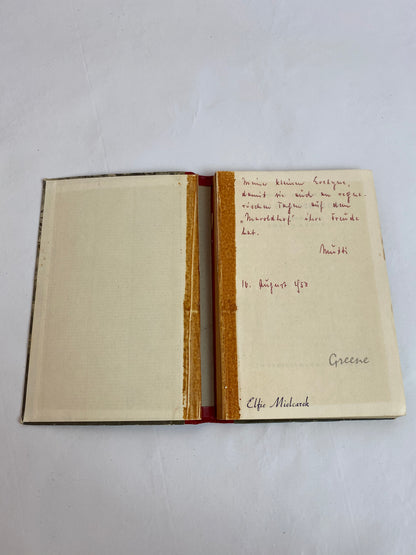 Meiner kleinen Evelyne,
damit sie auch an regne-
rischen Tagen auf dem
„Maroldhof" ihre Freude
hat.
Mutti
16. August 195
Greene
Elfie Mielcarek